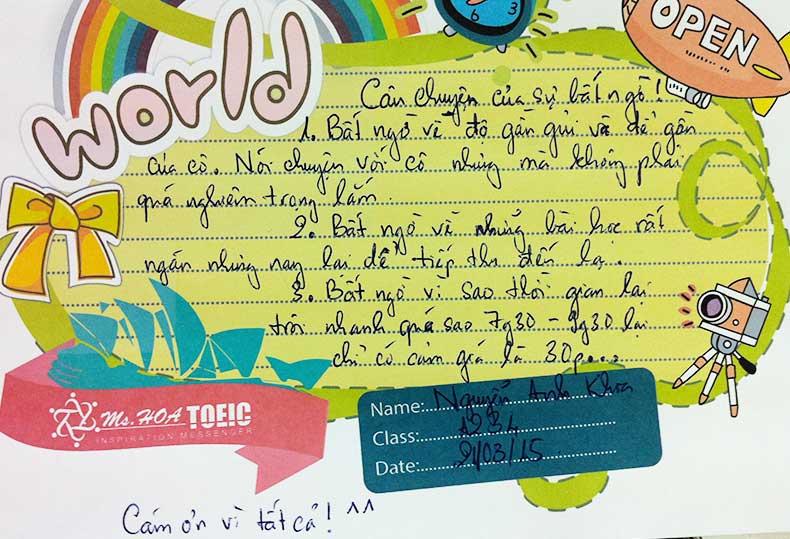 6 3
OPEN
world
Câu chuyện của sự bất ngờ!
1. Bất ngờ về độ gần gũi và dễ gần
của cô. Nói chuyện với cô nhưng mà không phải
quá nghiêm trọng lắm.
2. Bất ngờ về những bài học rất
ngắn nhưng nay lại dễ tiếp thu đến lạ.
3. Bất ngờ vì sao thời gian lại
trôi nhanh quá sao 7g30 - 9g30 lại
chỉ có cảm giá là 30p...
Ms. HOA TOEIC
INSPIRATION MESSENGER
Name: Nguyễn Anh Khoa
Class: A234
Date: 21/03/15
Cám ơn vì tất cả! ^^